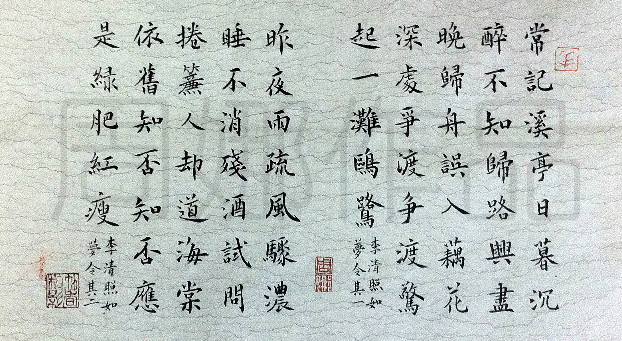 常記溪亭日暮沉
醉不知歸路興盡
晚歸舟誤入藕花
深處爭渡争渡驚
起一灘鷗鷺
李清照如
夢令其一
昨夜雨疏風驟濃
睡不消殘酒試問
捲簾人却道海棠
依舊知否知否應
是綠肥紅瘦
李清照如
夢令其二